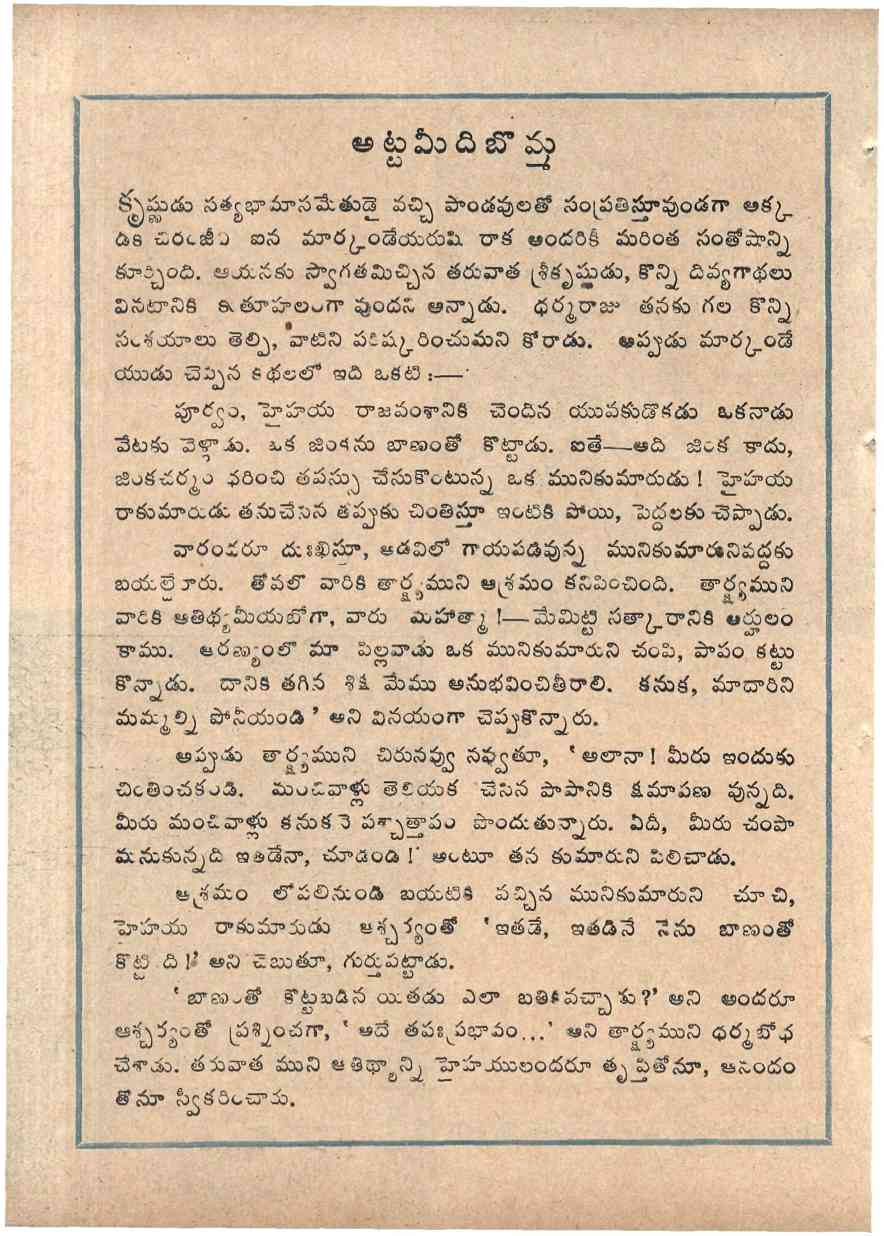 అట్టమీదిబొమ్మ
కృష్ణుడు సత్యభామాసమేతుడై వచ్చి పాండవులతో సంప్రతిస్తూవుండగా అక్క
డికి చిరంజీవి ఐన మార్కండేయరుషి రాక అందరికీ మరింత సంతోషాన్ని
కూర్చింది. ఆయనకు స్వాగతమిచ్చిన తరువాత శ్రీకృష్ణుడు, కొన్ని దివ్యగాథలు
వినటానికి కుతూహలంగా వుందని అన్నాడు. ధర్మరాజు తనకు గల కొన్ని
సంశయాలు తెల్పి, వాటిని పరిష్కరించుమని కోరాడు. అప్పుడు మార్కండే
యుడు చెప్పిన కథలలో ఇది ఒకటి :—
పూర్వం, హైహయ రాజవంశానికి చెందిన యువకుడొకడు ఒకనాడు
వేటకు వెళ్లాడు. ఒక జింకను బాణంతో కొట్టాడు. ఐతే—అది జింక కాదు,
జింకచర్మం ధరించి తపస్సు చేసుకొంటున్న ఒక మునికుమారుడు ! హైహయ
రాకుమారుడు తనుచేసిన తప్పుకు చింతిస్తూ ఇంటికి పోయి, పెద్దలకు చెప్పాడు.
వారందరూ దుఃఖిస్తూ, అడవిలో గాయపడివున్న మునికుమారునివద్దకు
బయల్దేరారు. తోవలో వారికి తార్క్ష్యముని ఆశ్రమం కనిపించింది. తార్క్ష్యముని
వారికి ఆతిథ్యమీయబోగా, వారు మహాత్మా !—మేమిట్టి సత్కారానికి అర్హులం
కాము. అరణ్యంలో మా పిల్లవాడు ఒక మునికుమారుని చంపి, పాపం కట్టు
కొన్నాడు. దానికి తగిన శిక్ష మేము అనుభవించితీరాలి. కనుక, మాదారిని
మమ్మల్ని పోనీయండి ’ అని వినయంగా చెప్పుకొన్నారు.
అప్పుడు తార్క్ష్యముని చిరునవ్వు నవ్వుతూ, ‘ అలానా ! మీరు ఇందుకు
చింతించకండి. మంచివాళ్లు తెలియక చేసిన పాపానికి క్షమాపణ వున్నది.
మీరు మంచివాళ్లు కనుకనే పశ్చాత్తాపం పొందుతున్నారు. ఏదీ, మీరు చంపా
మనుకున్నది ఇతడేనా, చూడండి !’ అంటూ తన కుమారుని పిలిచాడు.
ఆశ్రమం లోపలినుండి బయటికి వచ్చిన మునికుమారుని చూచి,
హైహయ రాకుమారుడు ఆశ్చర్యంతో ‘ ఇతడే, ఇతడినే నేను బాణంతో
కొట్టింది !’ అని చెబుతూ, గుర్తుపట్టాడు.
‘ బాణంతో కొట్టబడిన యితడు ఎలా బతికివచ్చాడు ?’ అని అందరూ
ఆశ్చర్యంతో ప్రశ్నించగా, ‘ అదే తపఃప్రభావం...’ అని తార్క్ష్యముని ధర్మబోధ
చేశాడు. తరువాత ముని ఆతిథ్యాన్ని హైహయులందరూ తృప్తితోనూ, ఆనందం
తోనూ స్వీకరించారు.